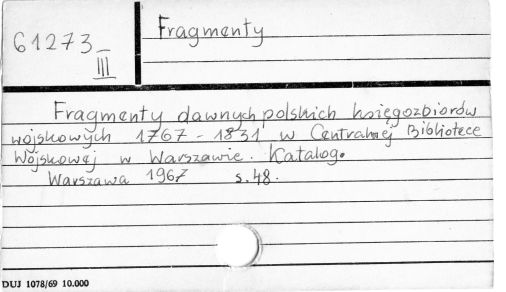 61273
III
Fragmenty
Fragmenty dawnych polskich księgozbiorów
wojskowych 1767-1831 w Centralnej Bibliotece
Wojskowej w Warszawie. Katalog.
Warszawa 1967 s.48.
DUJ 1078/69 10.000